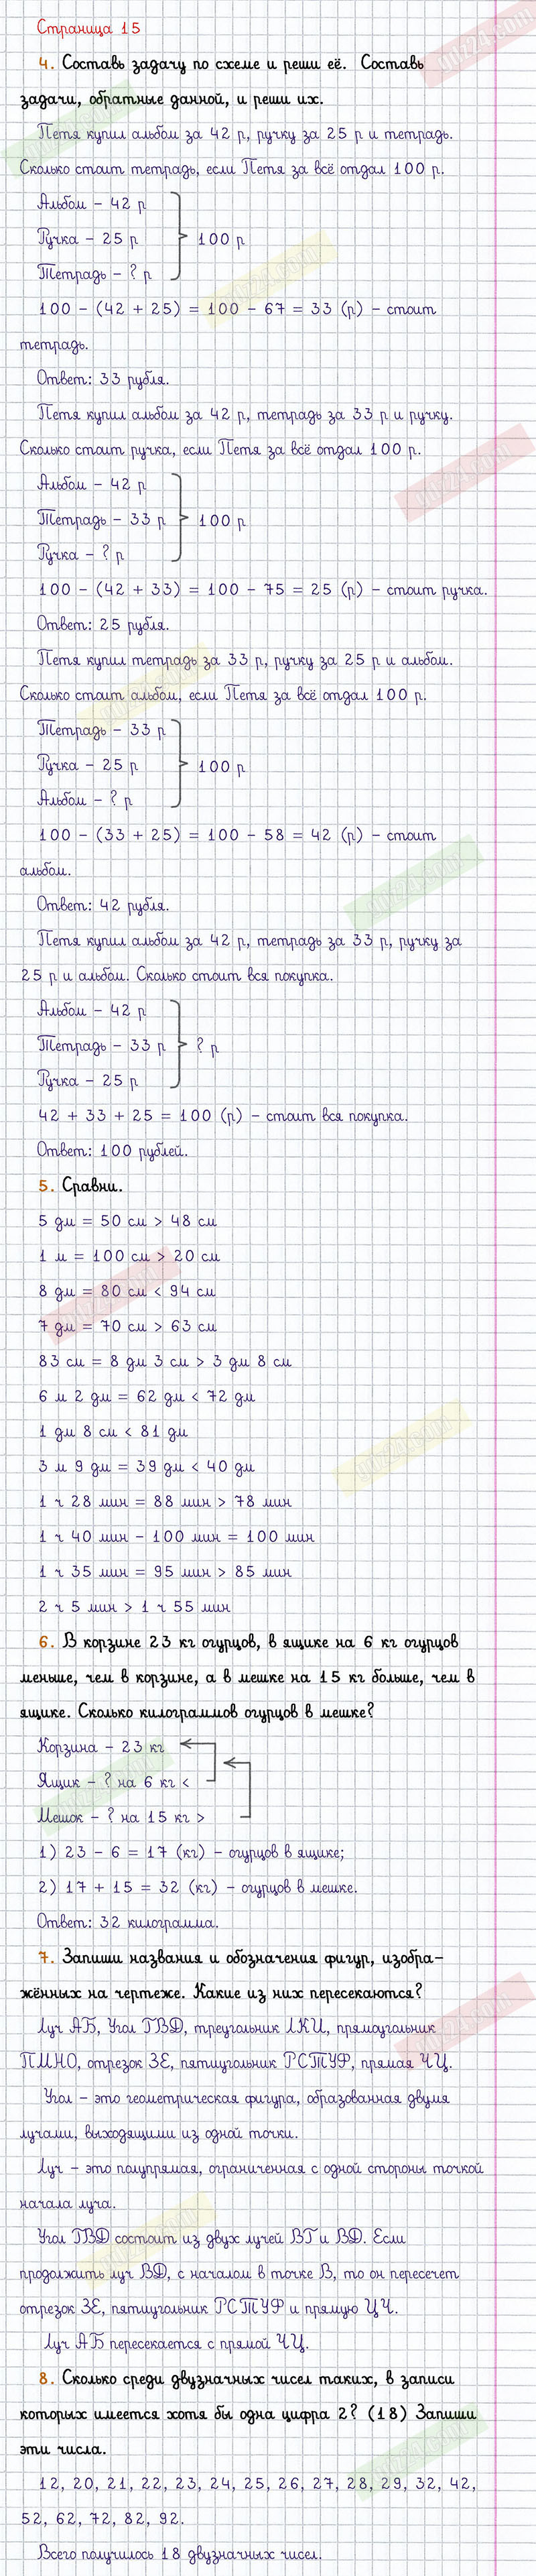 Страница 15
4. Составь задачу по схеме и реши её. Составь
задачи, обратные данной, и реши их.
Петя купил альбом за 42 р, ручку за 25 р и тетрадь.
Сколько стоит тетрадь, если Петя за всё отдал 100 р.
Альбом – 42 р
Ручка – 25 р 100 р
Тетрадь – ? р
100 – (42 + 25) = 100 – 67 = 33 (р) – стоит
тетрадь.
Ответ: 33 рубля.
Петя купил альбом за 42 р, тетрадь за 33 р и ручку.
Сколько стоит ручка, если Петя за всё отдал 100 р.
Альбом – 42 р
Тетрадь – 33 р 100 р
Ручка – ? р
100 – (42 + 33) = 100 – 75 = 25 (р) – стоит ручка.
Ответ: 25 рубля.
Петя купил тетрадь за 33 р, ручку за 25 р и альбом.
Сколько стоит альбом, если Петя за всё отдал 100 р.
Тетрадь – 33 р
Ручка – 25 р 100 р
Альбом – ? р
100 – (33 + 25) = 100 – 58 = 42 (р) – стоит
альбом.
Ответ: 42 рубля.
Петя купил альбом за 42 р, тетрадь за 33 р, ручку за
25 р и альбом. Сколько стоит вся покупка.
Альбом – 42 р
Тетрадь – 33 р ? р
Ручка – 25 р
42 + 33 + 25 = 100 (р) – стоит вся покупка.
Ответ: 100 рублей.
5. Сравни.
5 дм = 50 см > 48 см
1 м = 100 см > 20 см
8 дм = 80 см < 94 см
7 дм = 70 см > 63 см
83 см = 8 дм 3 см > 3 дм 8 см
6 м 2 дм = 62 дм < 72 дм
1 дм 8 см < 81 дм
3 м 9 дм = 39 дм < 40 дм
1 ч 28 мин = 88 мин > 78 мин
1 ч 40 мин – 100 мин = 100 мин
1 ч 35 мин = 95 мин > 85 мин
2 ч 5 мин > 1 ч 55 мин
6. В корзине 23 кг огурцов, в ящике на 6 кг огурцов
меньше, чем в корзине, а в мешке на 15 кг больше, чем в
ящике. Сколько килограммов огурцов в мешке?
Корзина – 23 кг
Ящик – ? на 6 кг <
Мешок – ? на 15 кг >
1) 23 – 6 = 17 (кг) – огурцов в ящике;
2) 17 + 15 = 32 (кг) – огурцов в мешке.
Ответ: 32 килограмма.
7. Запиши названия и обозначения фигур, изобра–
жённых на чертеже. Какие из них пересекаются?
Луч АБ, Угол ГВД, треугольник ЛКИ, прямоугольник
ПМНО, отрезок ЗЕ, пятиугольник РСТУФ, прямая ЧЦ.
Угол – это геометрическая фигура, образованная двумя
лучами, выходящими из одной точки.
Луч – это полупрямая, ограниченная с одной стороны точкой
начала луча.
Угол ГВД состоит из двух лучей ВГ и ВД. Если
продолжить луч ВД, с началом в точке В, то он пересечет
отрезок ЗЕ, пятиугольник РСТУФ и прямую ЦЧ.
Луч АБ пересекается с прямой ЧЦ.
8. Сколько среди двузначных чисел таких, в записи
которых имеется хотя бы одна цифра 2? (18) Запиши
эти числа.
12, 20, 21, 22, 23, 24, 25, 26, 27, 28, 29, 32, 42,
52, 62, 72, 82, 92.
Всего получилось 18 двузначных чисел.